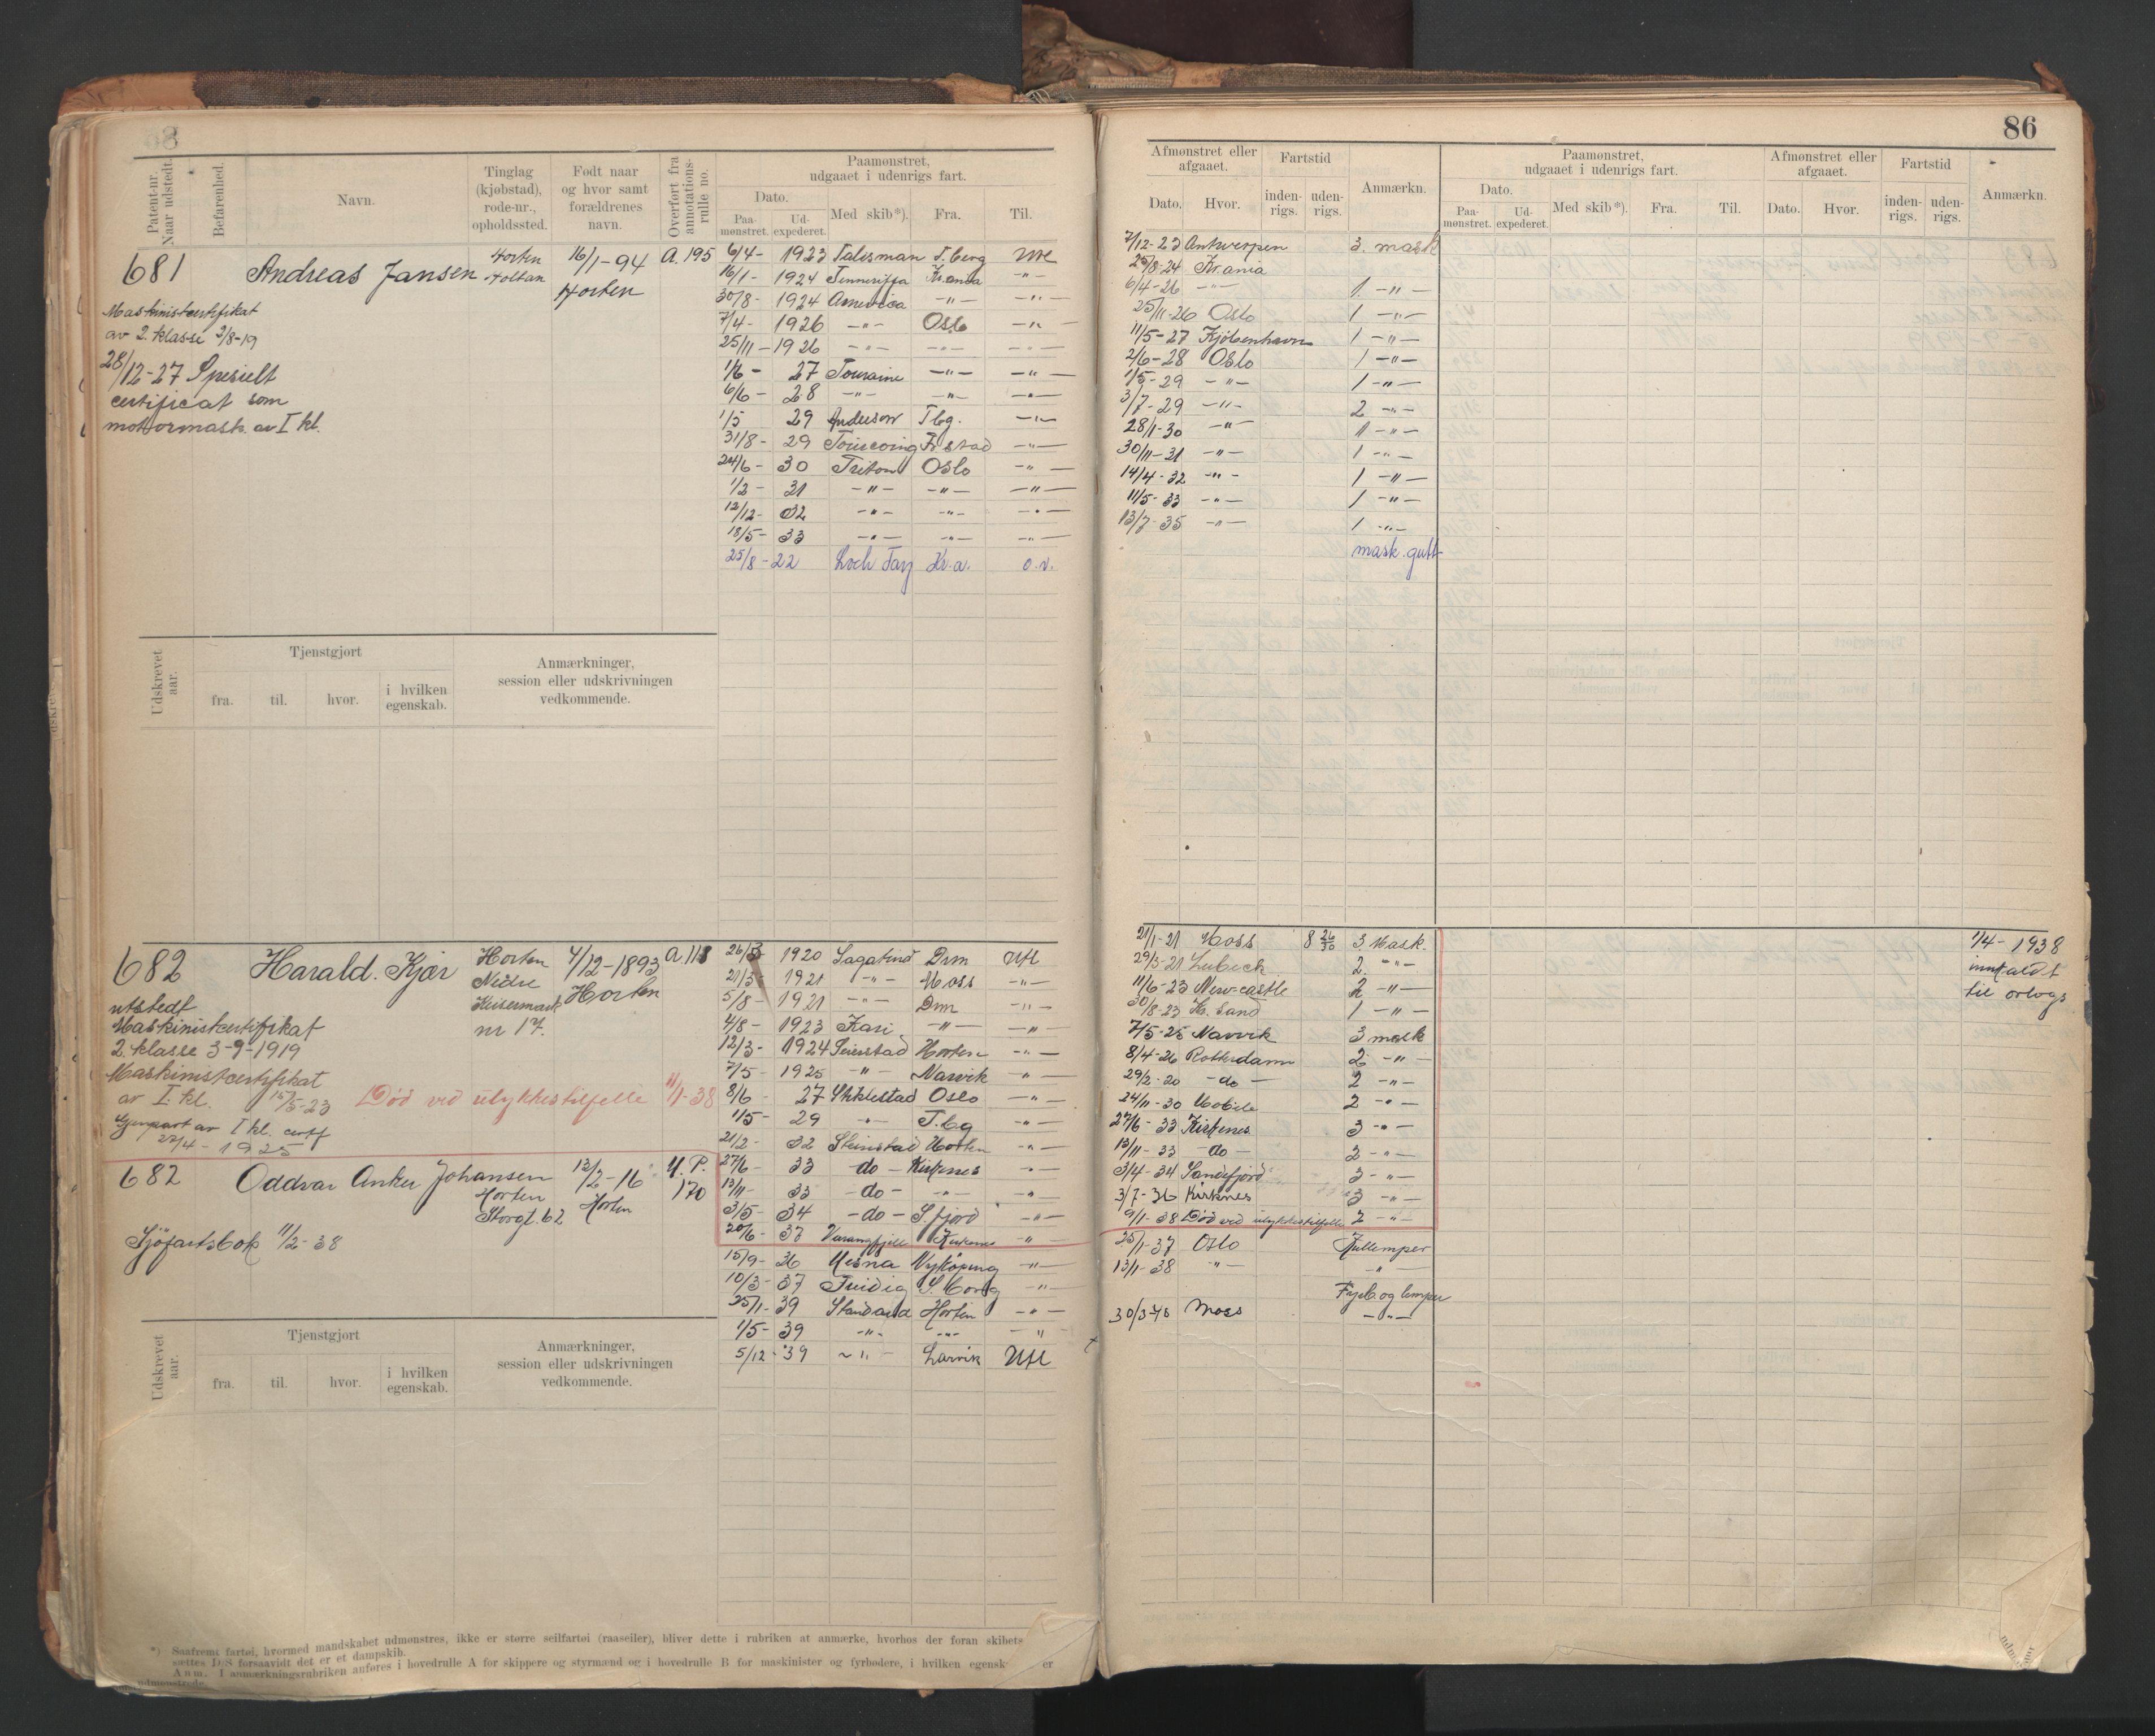 86
Patent-nr. Naar udstedt.
Befarenhed.
Navn.
Tinglag (kjøbstad), rode-nr., opholdssted.
Født naar og hvor samt forældrenes navn.
Overført fra annotations-rulle no.
Paamønstret, udgaaet i udenrigs fart.
Dato.
Paa-mønstret.
Ud-expederet.
Med skib*).
Fra.
Til.
Afmønstret eller afgaaet.
Dato.
Hvor.
Fartstid
inden-rigs.
uden-rigs.
Anmærkn.
Paamønstret, udgaaet i udenrigs fart.
Dato.
Paa-mønstret.
Ud-expederet.
Med skib*).
Fra.
Til.
Afmønstret eller afgaaet.
Dato.
Hvor.
Fartstid
inden-rigs.
uden-rigs.
Anmærkn.
681 Andreas Jansen Horten Holtan 16/1-94 Horten A. 195
Maskinistcertifikat
av 2. klasse 2/8-19
28/12-27 Spesielt
certificat som
motormask. av I kl.
6/4- 1923 Talisman T.berg
16/1- 1924 Tenneriffa Kr.ania -"-
30/8- 1924 America -"- -"-
7/4- 1926 -"- Oslo -"-
25/11- 1926 -"- -"- -"-
1/6- 27 Touraine -"- -"-
6/6- 28 -"- -"- -"-
1/5 29 Anderson Tbg. -"-
31/8- 29 Tourcoing F.stad -"-
24/6- 30 Triton Oslo -"-
1/2- 31 -"- -"- -"-
12/12- 32 -"- -"- -"-
18/5- 33 -"- -"- -"-
25/8-22 Loch Tay Kr.a. o.v.
7/12-23 Antwerpen 3. mask
25/8-24 Kr.ania
6/4-26 -"- 1 -"-
25/11-26 Oslo 1 -"-
11/5-27 Kjöbenhavn 1 -"-
2/6-28 Oslo 1 -"-
1/5-29 -"- 1 -"-
3/7-29 -"- 2 -"-
28/1-30 -"- 1 -"-
30/11-31 -"- 1 -"-
14/4-32 -"- 1 -"-
11/5-33 -"- 1 -"-
13/7-35 -"- 1 -"-
mask.gutt
Udskrevet aar.
Tjenstgjort
fra.
til.
hvor.
i hvilken egenskab.
Anmærkninger, session eller udskrivningen vedkommende.
682 Harald. Kjær Horten Nedre Keisermark nr 17. 4/12-1893 Horten A 118
utstedt
Maskinistcertifikat
2. klasse 3-9-1919
Maskinistcertifikat
av I. kl. 15/5-23
Død ved ulykkestilfelle 11/1-38
Gjenpart av I kl. certf
22/4-1925
26/3 1920 Sagatind Drm Utl
21/3- 1921 -"- Moss -"-
5/8- 1921 -"- Drm -"-
4/8- 1923 Kari -"- -"-
12/3- 1924 Seierstad Horten -"-
7/5- 1925 -"- Narvik -"-
8/6- 27 Stiklestad Oslo -"-
1/5- 29 -"- T.bg -"-
21/2- 32 Steinstad Horten -"-
27/6- 33 -do- Kirkenes -"-
13/11- 33 -do- -"- -"-
3/5- 34 -do- S.fjord -"-
20/6- 37 Varangfjell Kirkenes -"-
21/1-21 Moss 8 26/30 3. Mask.
29/3-21 Lubeck 2. -"-
11/6-23 New-castle 2 -"-
30/8-23 Kr. Sand 1 -"-
7/5-25 Narvik 3 mask
8/4-26 Rotterdam 2 -"-
29/2-20 -do- 2 -"-
24/11-30 Mobile 2 -"-
27/6-33 Kirkenes 3 -"-
13/11-33 -do- 2 -"-
3/4-34 Sandefjord 3 -"-
3/7-36 Kirknes 3 -"-
9/1-38 Död ved ulykkestilfelle 2 -"-
1/4-1938
innkaldt
til orlogs
682 Oddvar Anker Johansen Horten Storgt. 62 12/2-16 Horten U.P. 170
Sjöfartsbok 11/2-38
15/9- 36 Mesna Nykøping -"-
10/3- 37 Freidig S.borg -"-
25/1- 39 Standard Horten -"-
1/5- 39 -"- -"- -"-
5/12- 39 -"- Larvik Utl
25/1-37 Oslo Kullemper
13/1-38 -"- -"-
Fyrb. og lemper
30/3-40 Moss -"-
Udskrevet aar.
Tjenstgjort
fra.
til.
hvor.
i hvilken egenskab.
Anmærkninger, session eller udskrivningen vedkommende.
*) Saafremt fartøi, hvormed mandskabet udmønstres, ikke er større seilfartøi (raaseiler), bliver dette i rubriken at anmærke, hvorhos der foran skibets
sættes D/S forsaavidt det er et dampskib.
Anm. I anmærkningsrubriken anføres i hovedrulle A for skippere og styrmænd og i hovedrulle B for maskinister og fyrbødere, i hvilken egensk er
udmønstrede.